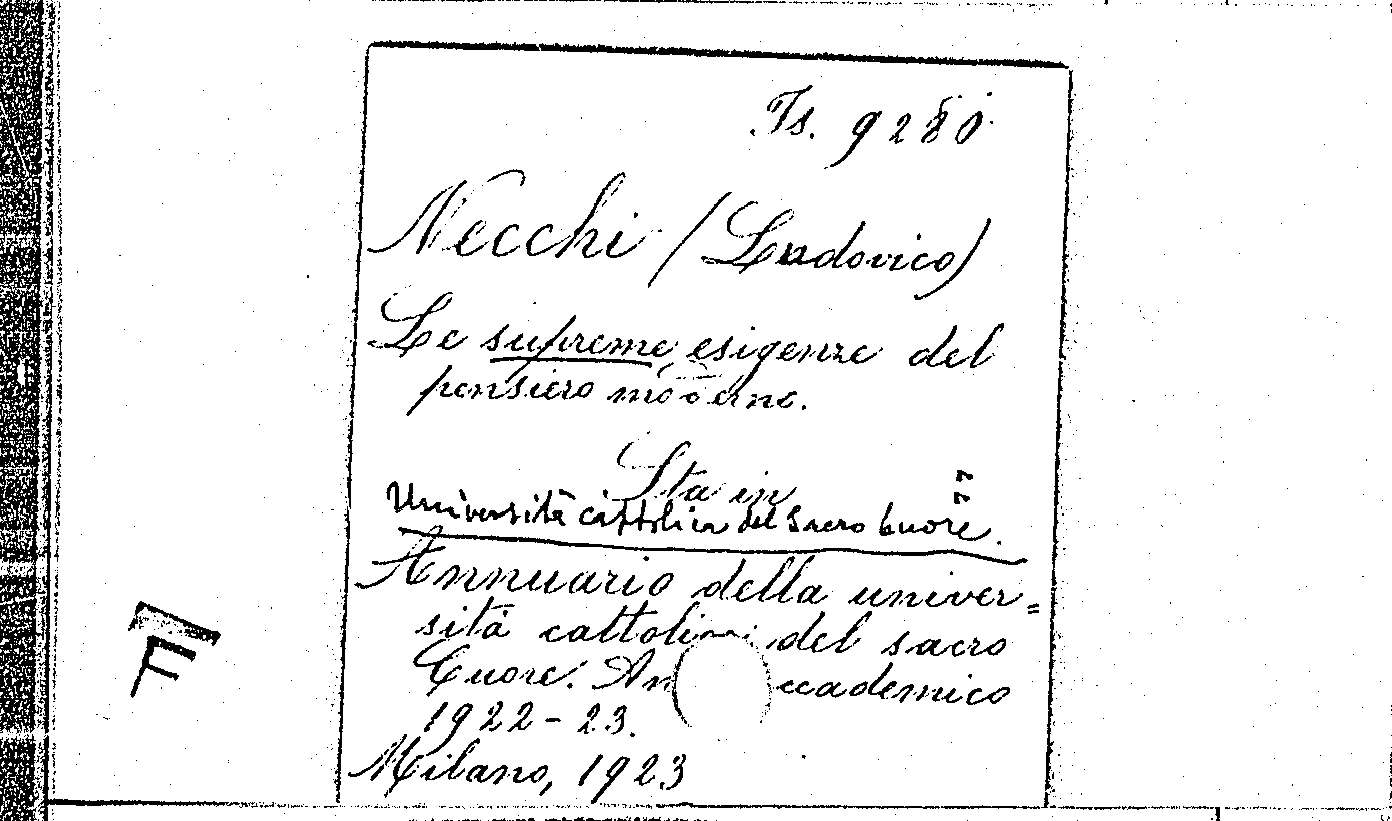 Is. 9280
Necchi (Ludovico)
Le supreme esigenze del
pensiero moderno.
Sta in
"
Università cattolica del Sacro Cuore.
Annuario della univer=
sità cattolica del sacro
Cuore. An ccademico
1922-23.
Milano, 1923
F